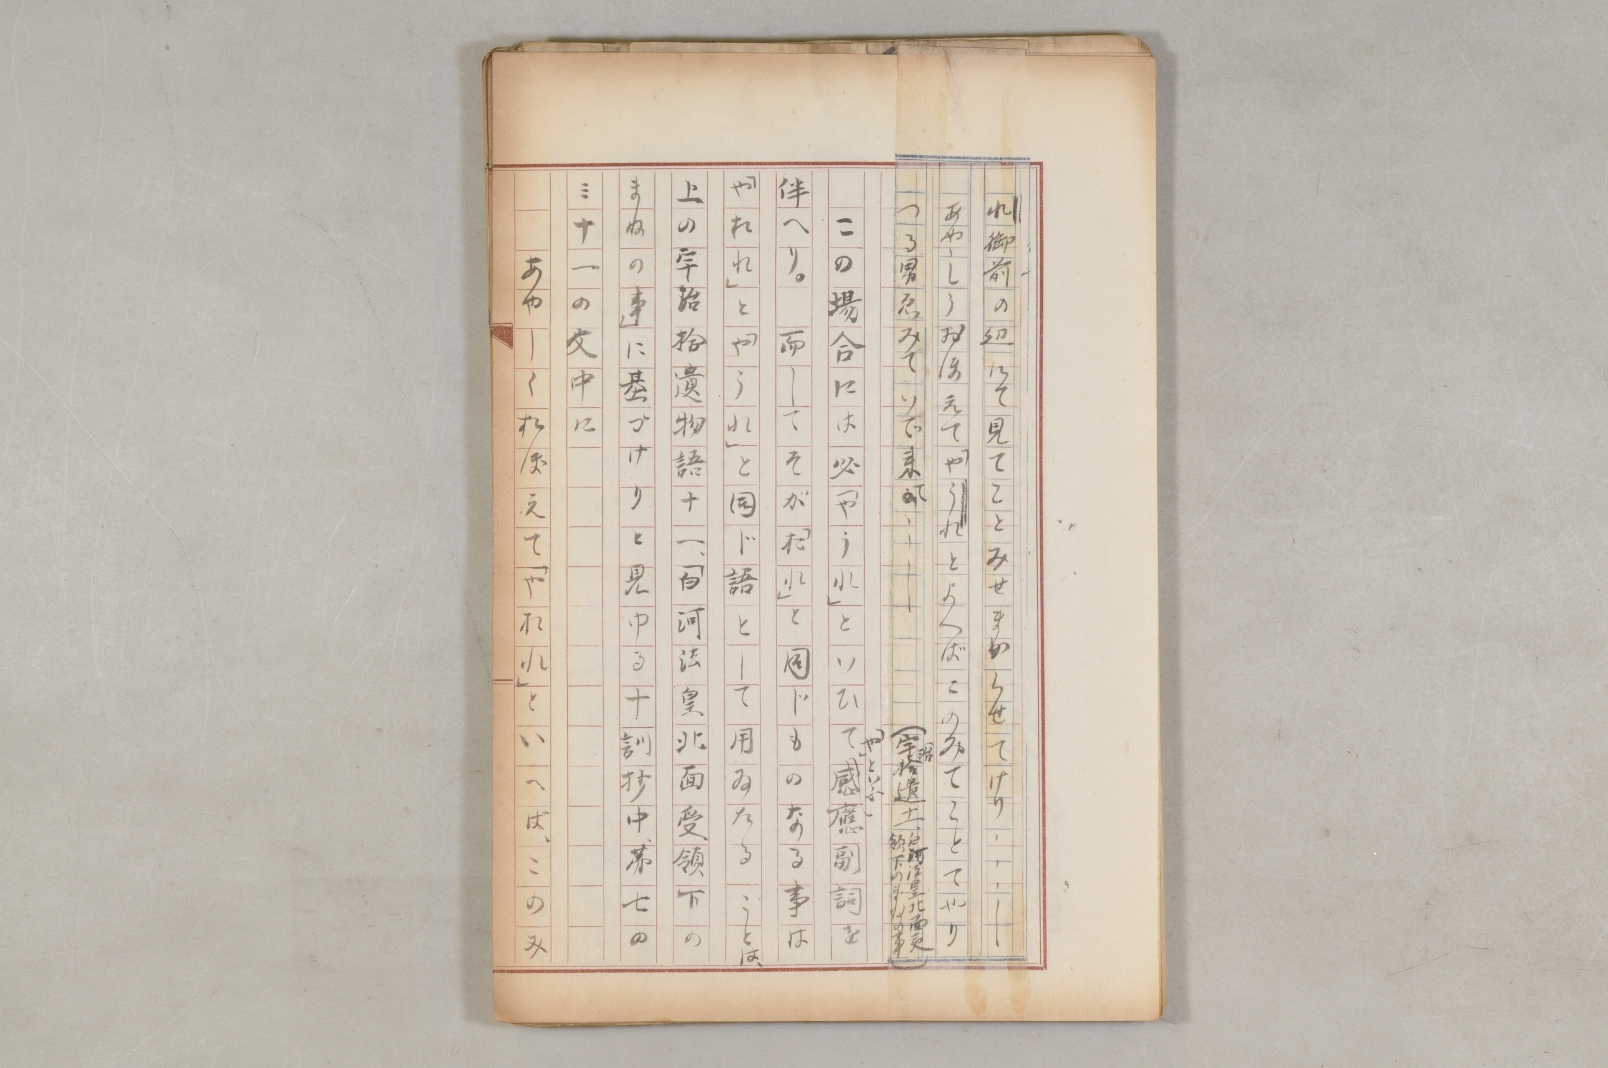 れ御前の辺にて見てことみせまからせてけり
あやしうおぼえて「やうれとよべばこのみてことてやり
つる男ゑみていで来て
(宇治拾遺十一、白河法皇北面受領下のまねの事)
この場合には必「やうれ」といひて感應副詞を
「や」といふ
伴へり。而してそが「おれ」と同じものなる事は
「やおれ」と「やうれ」と同じ語として用ゐたることは、
上の宇治拾遺物語十一、「白河法皇北面受領下の
まねの事」に基づけりと見ゆる十訓抄中、第七の
三十一の文中に
あやしくおぼえて「やおれ」といへば、このみ